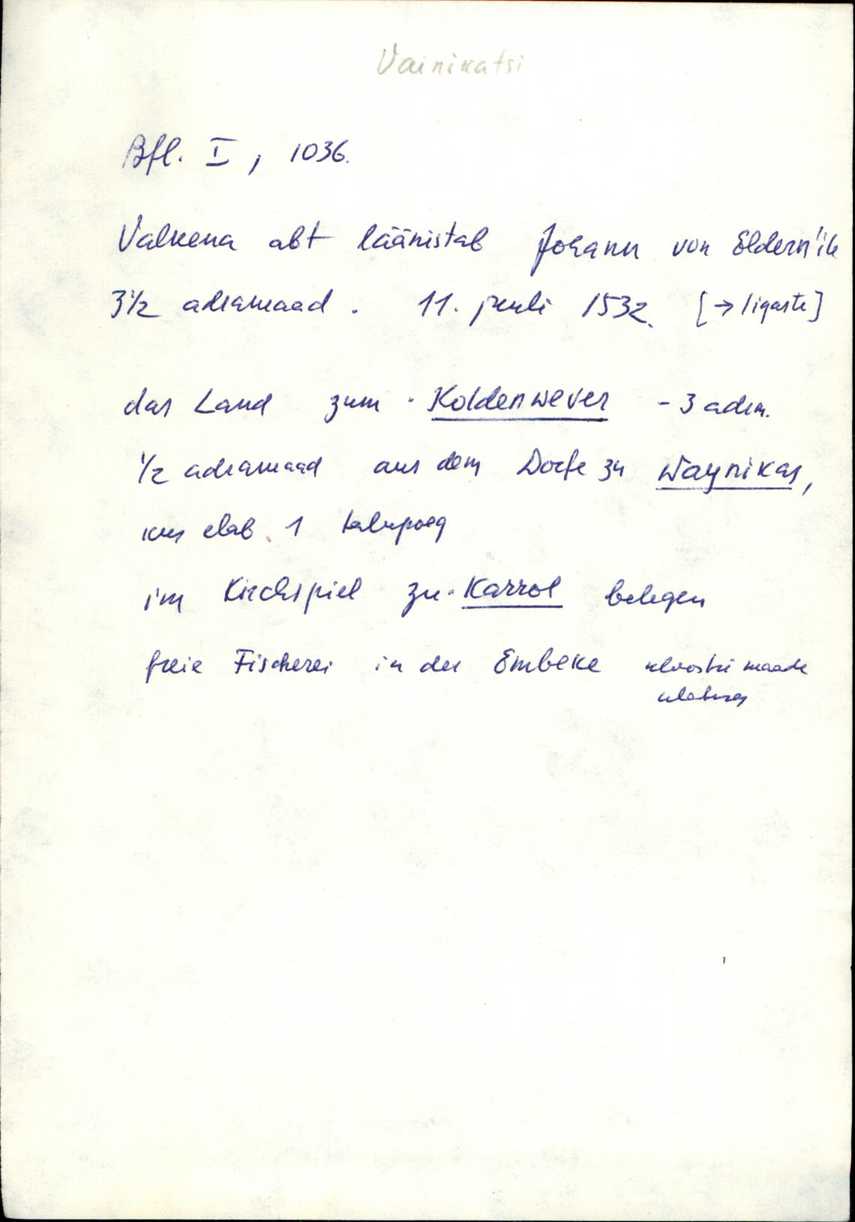 Vainikatsi
Bfl. I, 1036.
Valkena abt läänistab Johann von Eldern'ile
3 1/2 adramaad. 11. juuli 1532. [→ ligaste]
das Land zum Koldenwever - 3 adrm.
1/2 adramaad aus dem Dorfe zu Waynikas,
kus elab 1 talupoeg
im Kirchspiel zu Karrol belegen
freie Fischerei in der Embeke kloostri maade
ulatuses